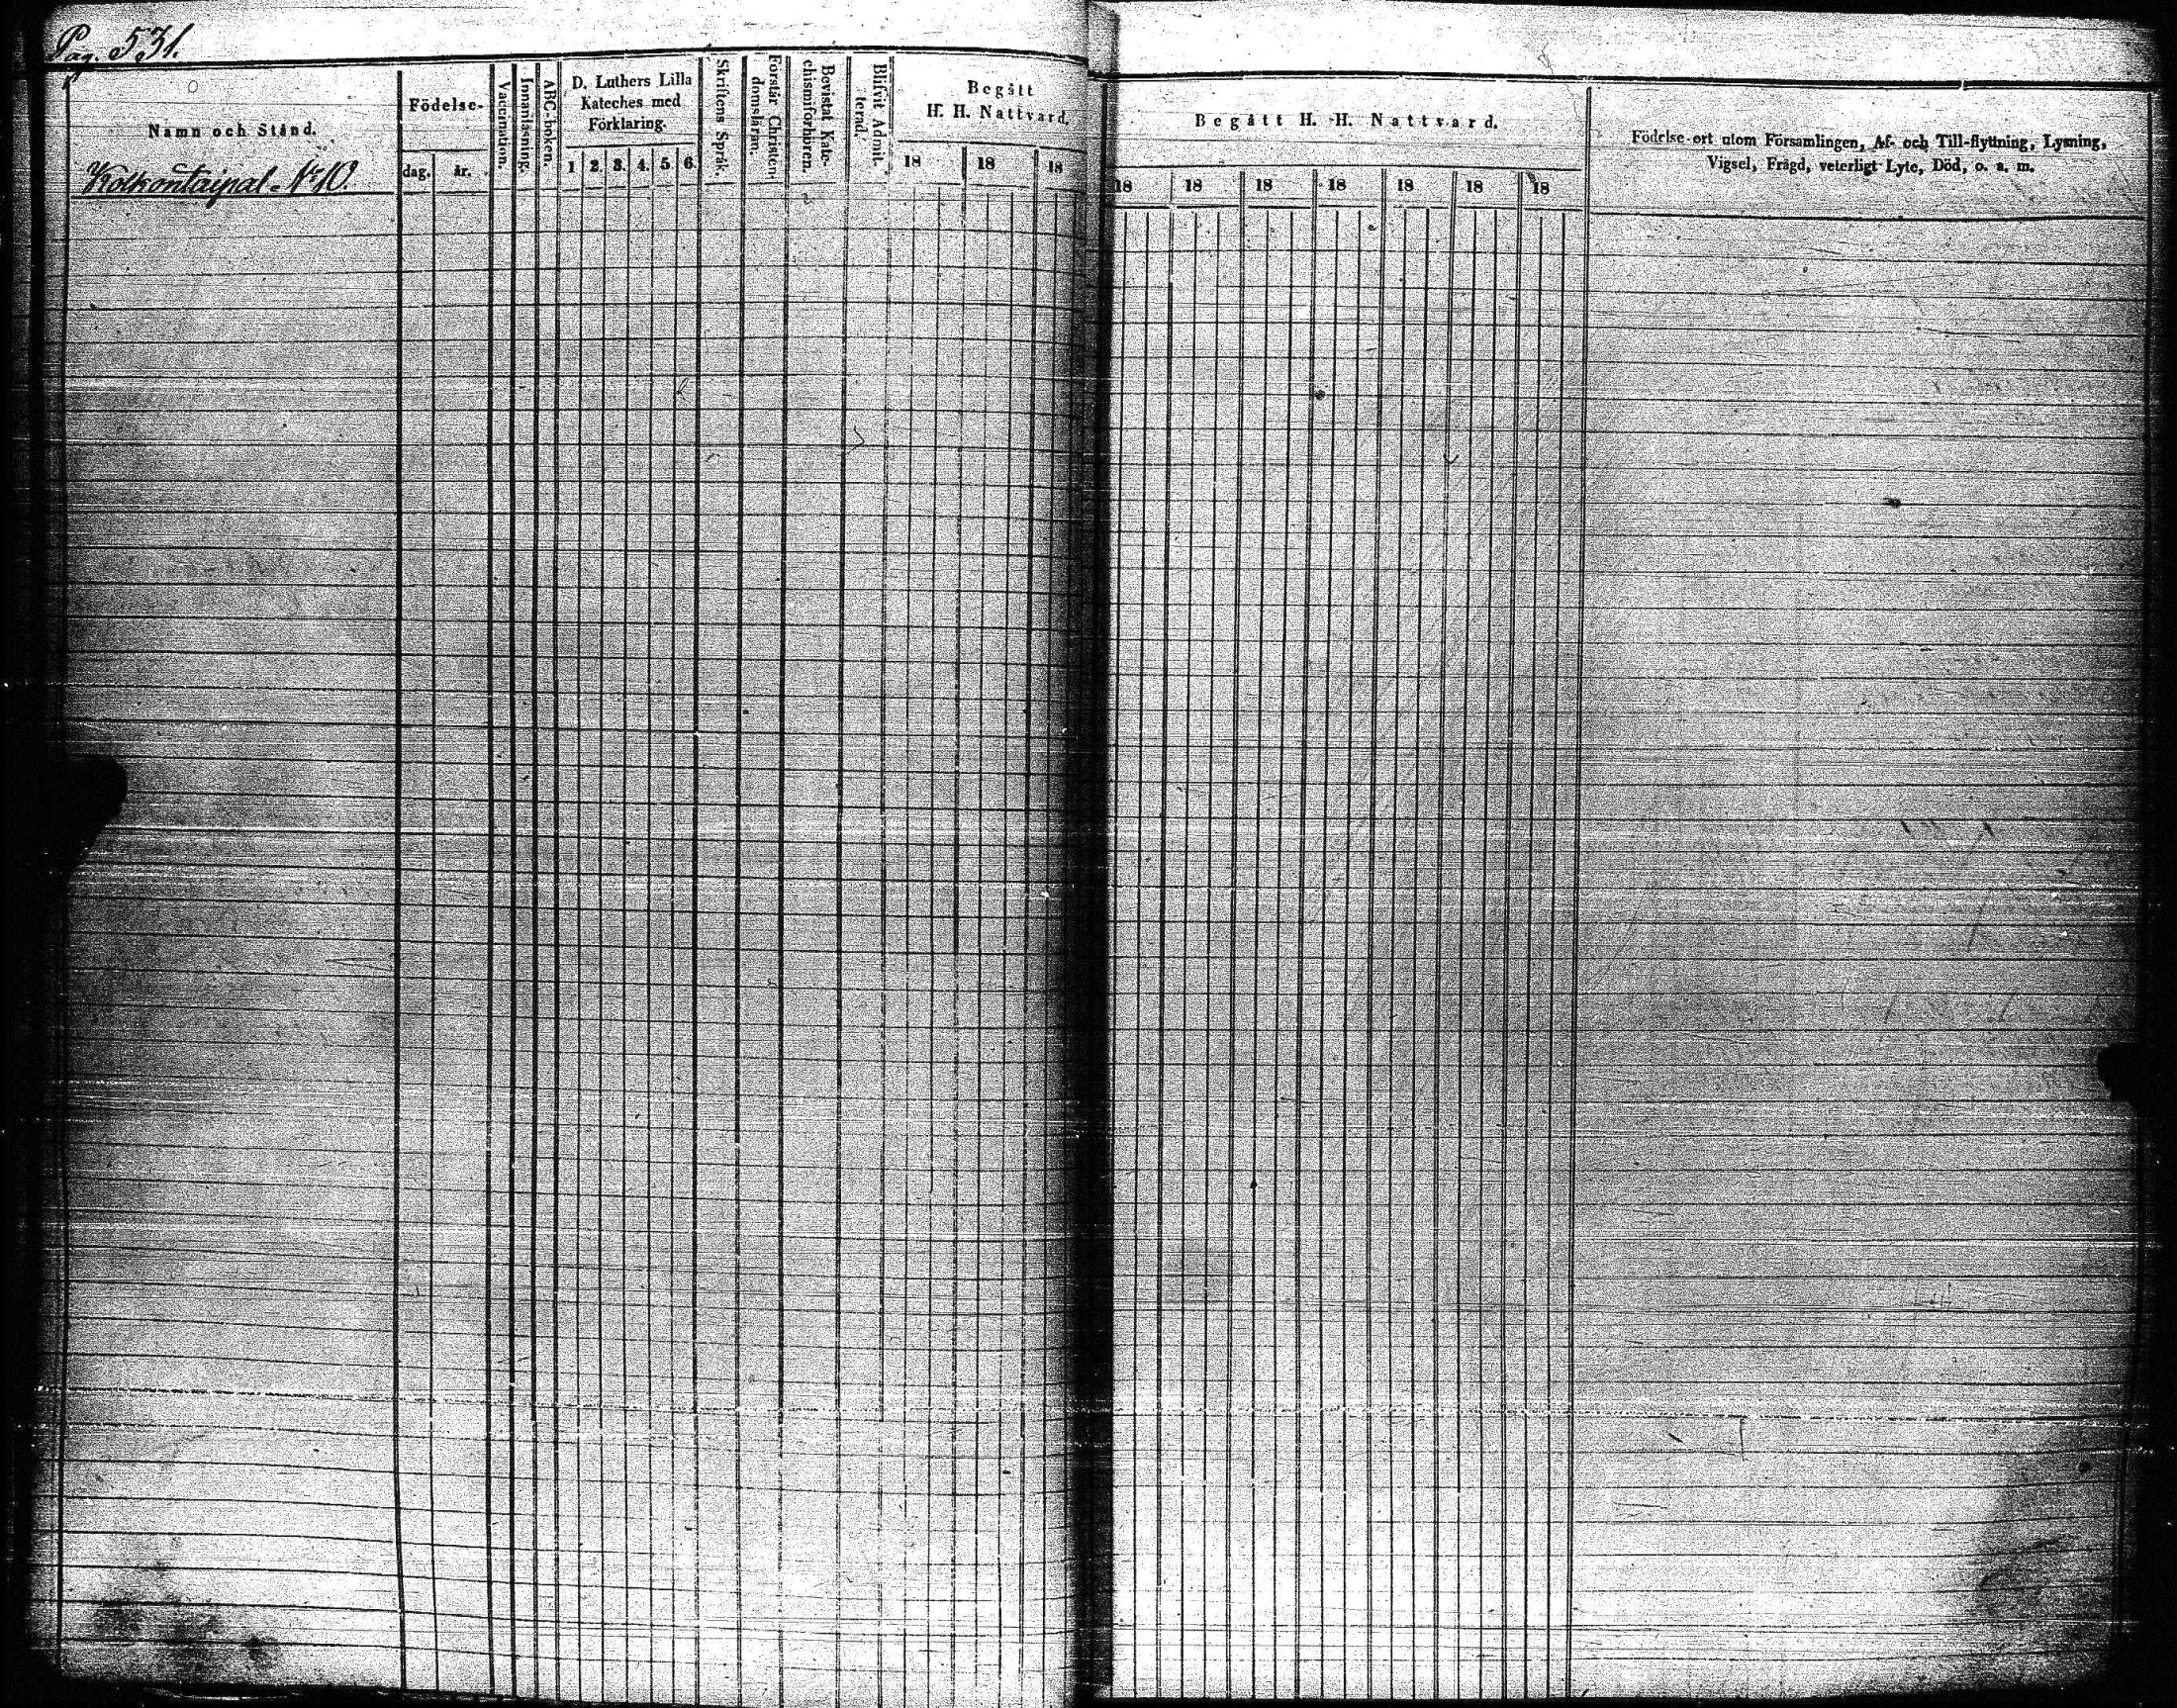 Pag. 531.
Namn och Stånd.
Kolkontaipal N:o 10.
Födelse-
dag. år.
Vaccination.
Innanläsning.
ABC-boken.
D. Luthers Lilla
Kateches med
Förklaring.
1 2. 3. 4. 5. 6.
Skriftens Språk.
Förstår Christen-
domsläran.
Bevistat Kate-
chismiförhören.
Blifvit Admit-
terad.
Begått
H. H. Nattvard.
18 18 18
Begått H. H. Nattvard.
18 18 18 18 18 18 18
Födelse-ort utom Församlingen, Af- och Till-flyttning, Lysning,
Vigsel, Frägd, veterligt Lyte, Död, o. a. m.